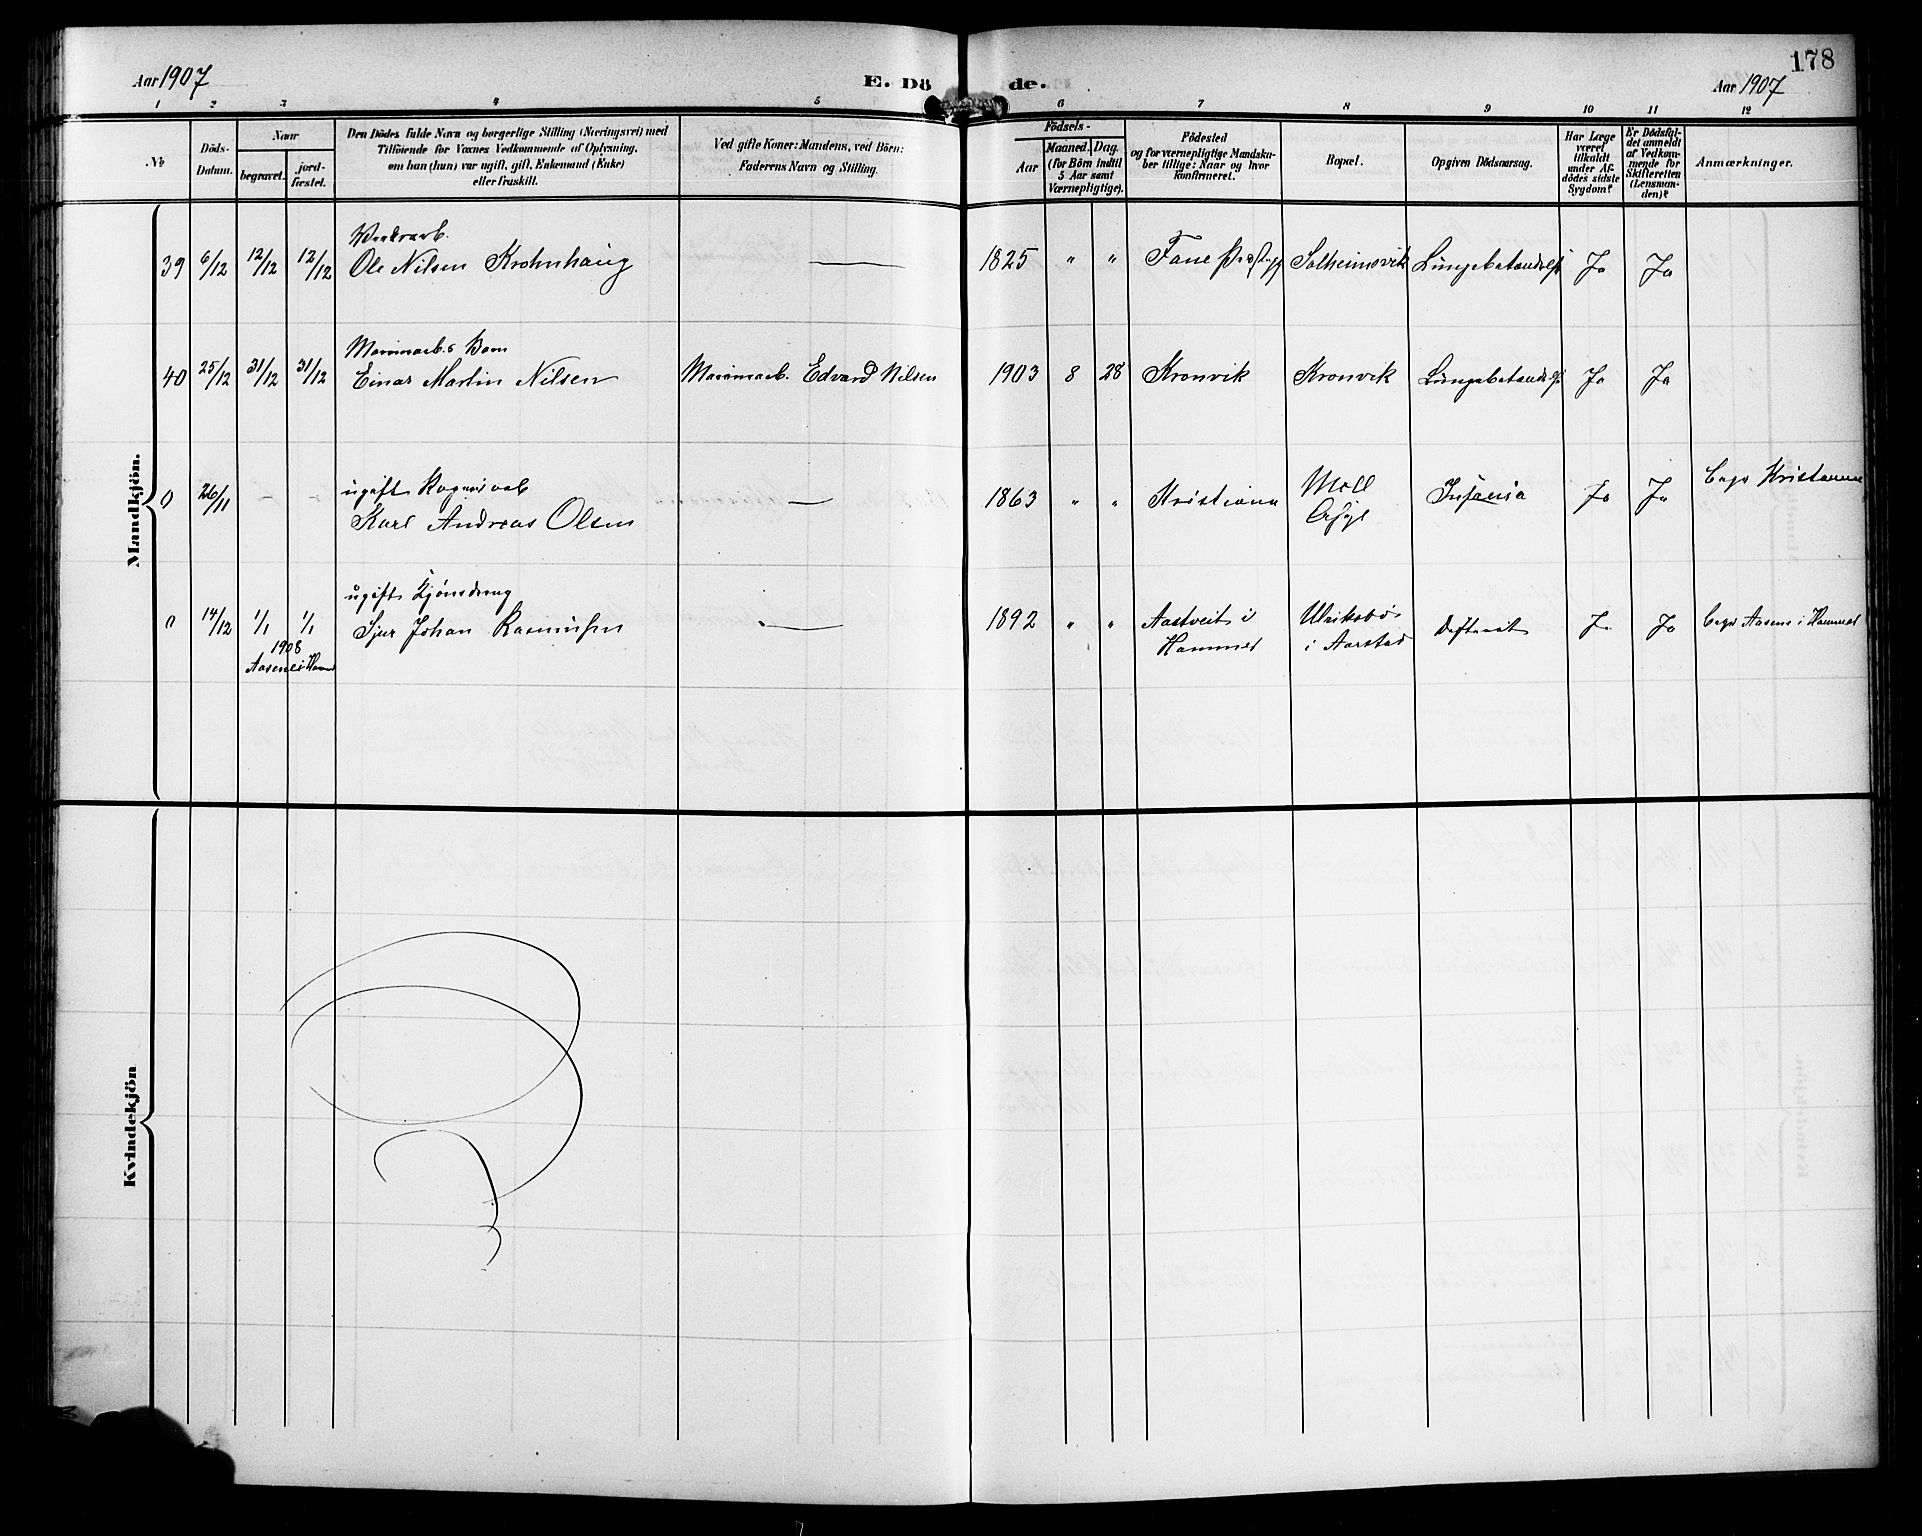 178
Aar 1907
E. Dö
de.
Aar 1907
1 2 3 4 5 6 7 8 9 10 11 12
No
Döds-
Datum.
Naar
begravet.
jord-
fæstet.
Den Dödes fulde Navn og borgerlige Stilling (Næringsvei) med
Tilföiende for Voxnes Vedkommende af Oplysning,
om han (hun) var ugift, gift, Enkemand (Enke)
eller fraskilt.
Ved gifte Koner: Mandens, ved Börn:
Faderens Navn og Stilling.
Födsels-
Aar
Maaned. Dag.
(for Börn indtil
5 Aar samt
Værnepligtige).
Födested
og for værnepligtige Mandska-
ber tillige: Naar og hvor
konfirmeret.
Bopæl.
Opgiven Dödsaarsag.
Har Læge
været
tilkaldt
under Af-
dödes sidste
Sygdom?
Er Dödsfal-
det anmeldt
af Vedkom-
mende for
Skifteretten
(Lensman-
den)?
Anmærkninger.
Mandkjön.
39 6/12 12/12 12/12
Ole Nilsen Krohnhaug
— 1825 " " Fane Solheimsvik Lungebetændelse Ja Ja
40 25/12 31/12 31/12
Einar Martin Nilsen
Edvard Nilsen 1903 8 28 Kronvik Kronvik Lungebetændelse Ja Ja
0 26/11 - -
ugift
Karl Andreas Olsen
— 1863 " " Kristiania
Møll
Asyl
Insania Ja Ja
0 14/12 1/1 1/1
1908
ugift
Sjur Johan Rasmussen
— 1892 " "
Aastveit i
Hammer
Ulriksbø
i Aarstad
Difterit Ja Ja
Kvindekjön